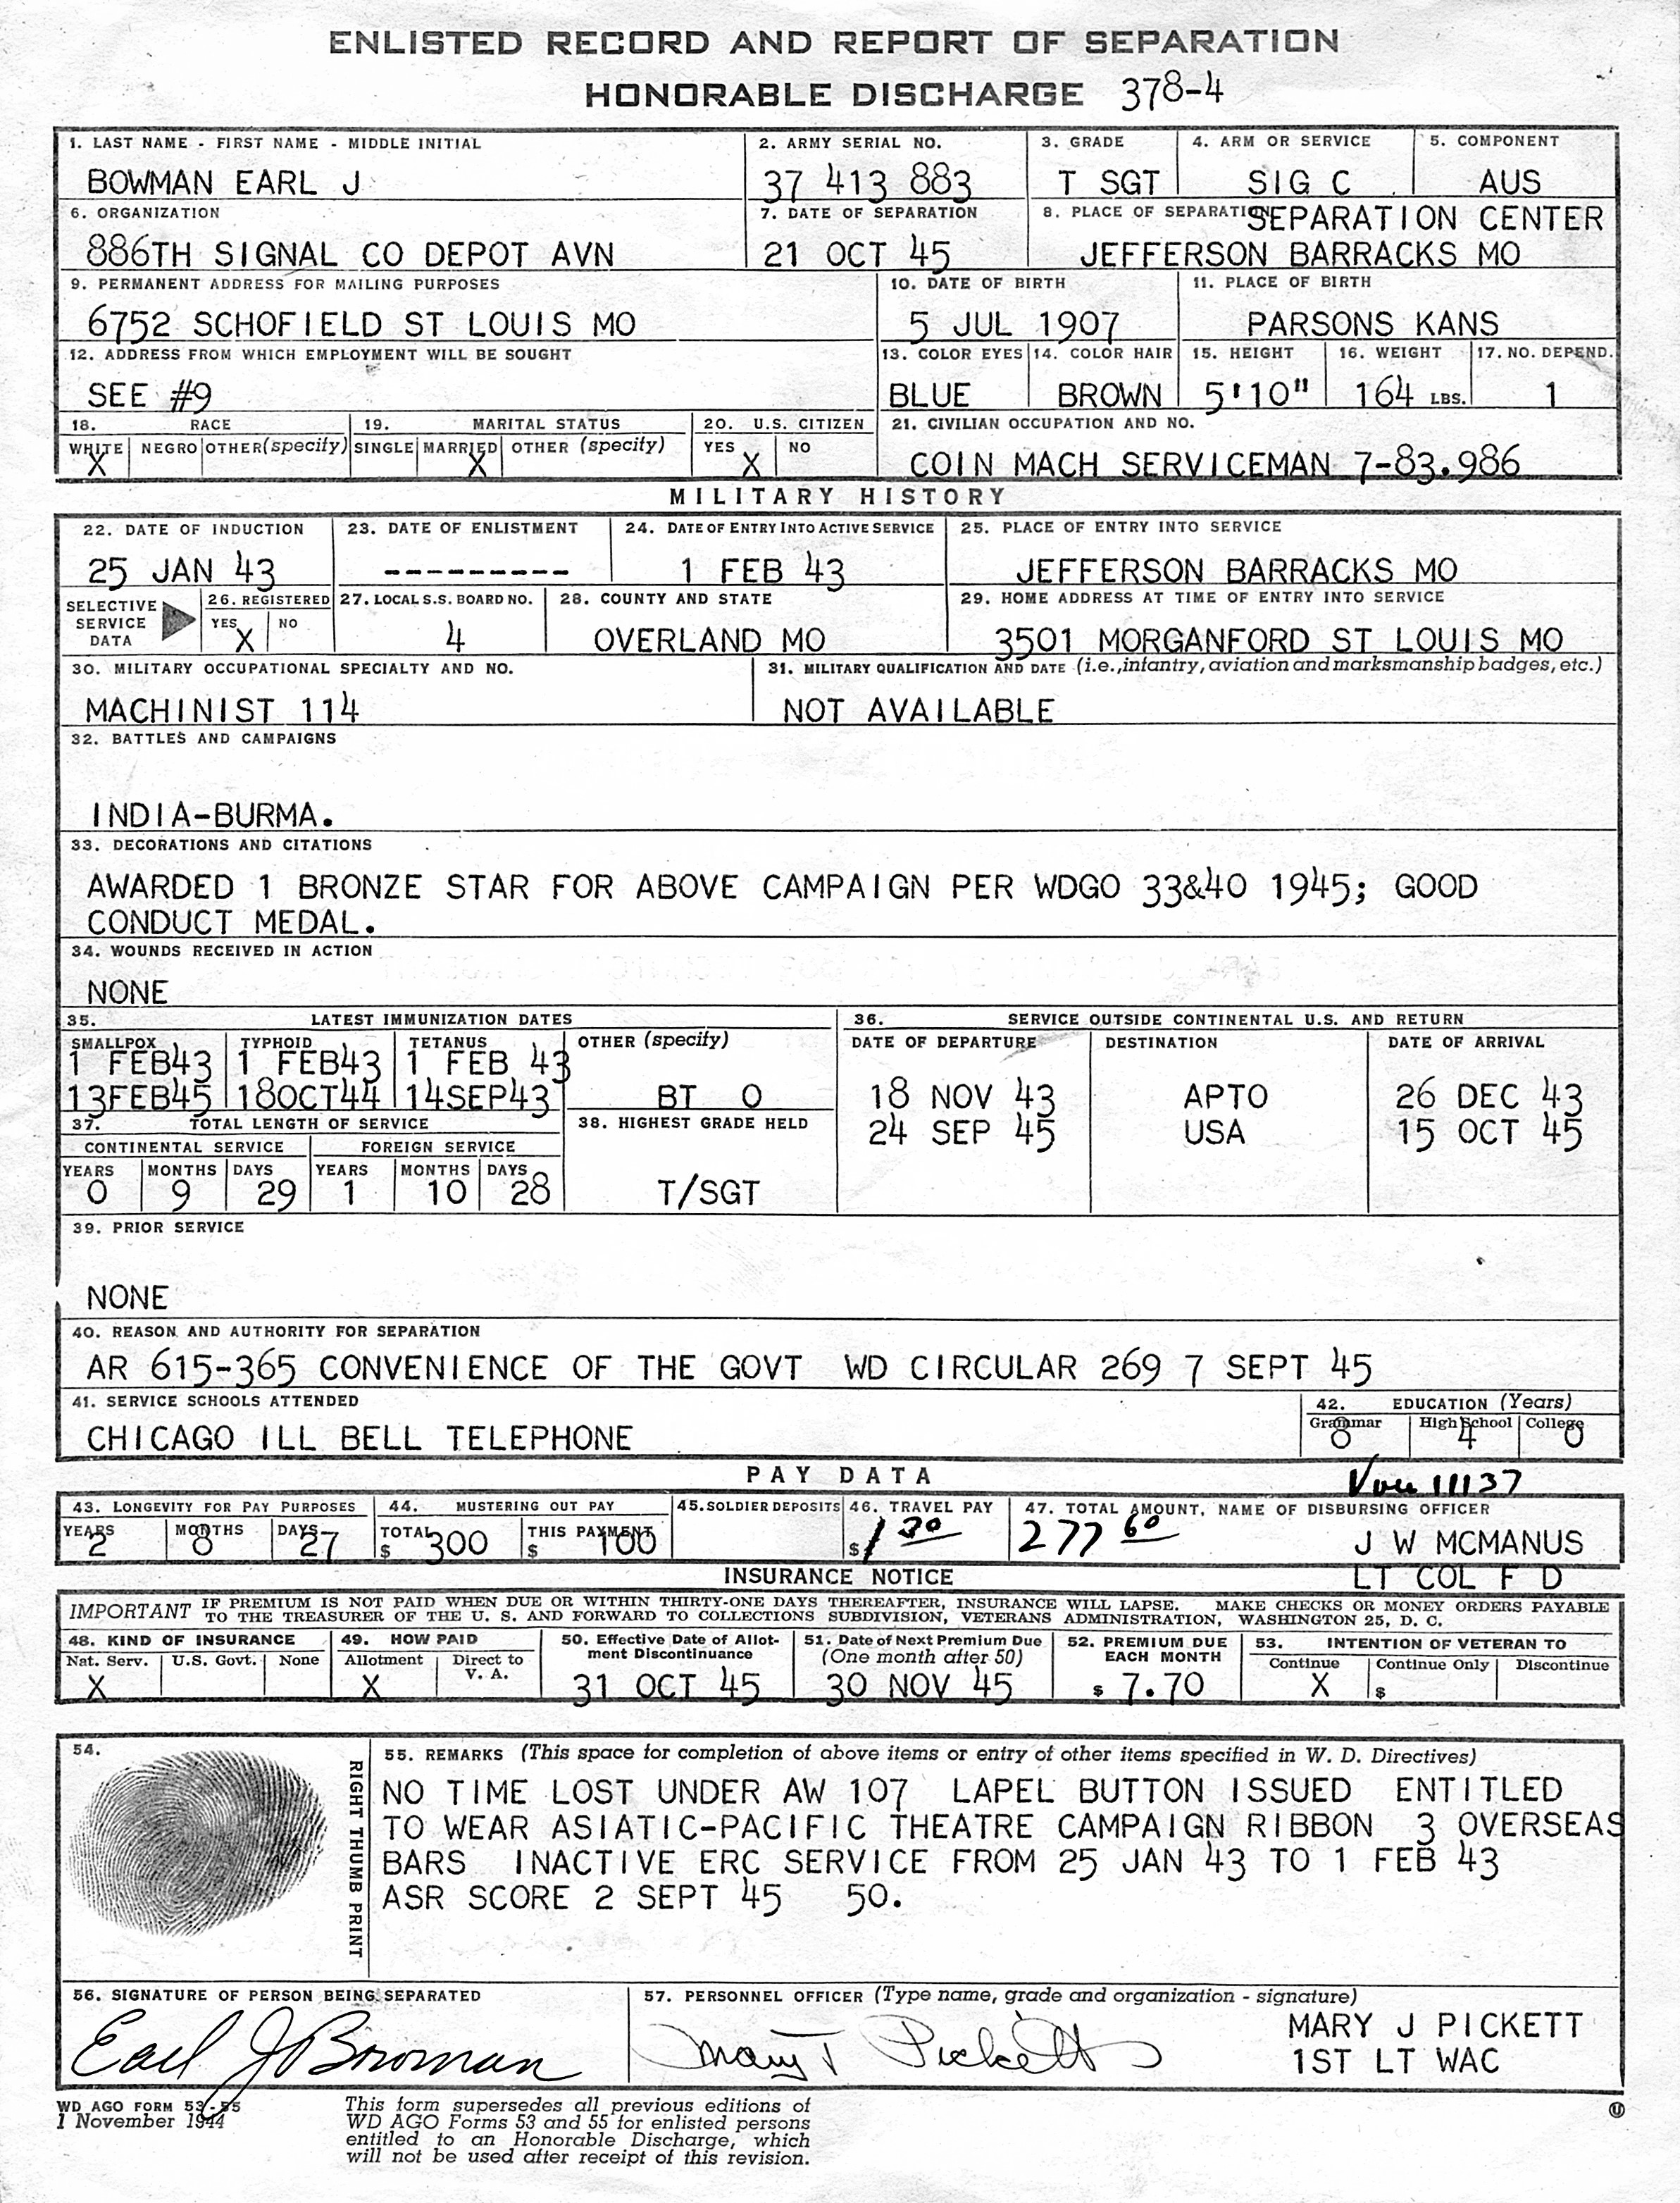 ENLISTED RECORD AND REPORT OF SEPARATION
HONORABLE DISCHARGE 378-4
1. LAST NAME - FIRST NAME - MIDDLE INITIAL
BOWMAN EARL J
2. ARMY SERIAL NO.
37 413 883
3. GRADE
T SGT
4. ARM OR SERVICE
SIG C
5. COMPONENT
AUS
6. ORGANIZATION
886TH SIGNAL CO DEPOT AVN
7. DATE OF SEPARATION
21 OCT 45
8. PLACE OF SEPARATION SEPARATION CENTER
JEFFERSON BARRACKS MO
9. PERMANENT ADDRESS FOR MAILING PURPOSES
6752 SCHOFIELD ST LOUIS MO
10. DATE OF BIRTH
5 JUL 1907
11. PLACE OF BIRTH
PARSONS KANS
12. ADDRESS FROM WHICH EMPLOYMENT WILL BE SOUGHT
SEE #9
13. COLOR EYES
BLUE
14. COLOR HAIR
BROWN
15. HEIGHT
5'10"
16. WEIGHT
164 LBS.
17. NO. DEPEND.
1
18. RACE
WHITE NEGRO OTHER (specify)
X
19. MARITAL STATUS
SINGLE MARRIED OTHER (specify)
X
20. U.S. CITIZEN
YES NO
X
21. CIVILIAN OCCUPATION AND NO.
COIN MACH SERVICEMAN 7-83.986
MILITARY HISTORY
22. DATE OF INDUCTION
25 JAN 43
23. DATE OF ENLISTMENT
---------
24. DATE OF ENTRY INTO ACTIVE SERVICE
1 FEB 43
25. PLACE OF ENTRY INTO SERVICE
JEFFERSON BARRACKS MO
SELECTIVE
SERVICE
DATA
26. REGISTERED
YES NO
X
27. LOCAL S.S. BOARD NO.
4
28. COUNTY AND STATE
OVERLAND MO
29. HOME ADDRESS AT TIME OF ENTRY INTO SERVICE
3501 MORGANFORD ST LOUIS MO
30. MILITARY OCCUPATIONAL SPECIALTY AND NO.
MACHINIST 114
31. MILITARY QUALIFICATION AND DATE (i.e., infantry, aviation and marksmanship badges, etc.)
NOT AVAILABLE
32. BATTLES AND CAMPAIGNS
INDIA-BURMA.
33. DECORATIONS AND CITATIONS
AWARDED 1 BRONZE STAR FOR ABOVE CAMPAIGN PER WDGO 33&40 1945; GOOD
CONDUCT MEDAL.
34. WOUNDS RECEIVED IN ACTION
NONE
35. LATEST IMMUNIZATION DATES
SMALLPOX TYPHOID TETANUS OTHER (specify)
1 FEB43 1 FEB43 1 FEB 43
13FEB45 18OCT44 14SEP43 BT O
36. SERVICE OUTSIDE CONTINENTAL U.S. AND RETURN
DATE OF DEPARTURE DESTINATION DATE OF ARRIVAL
18 NOV 43 APTO 26 DEC 43
24 SEP 45 USA 15 OCT 45
37. TOTAL LENGTH OF SERVICE
CONTINENTAL SERVICE FOREIGN SERVICE
YEARS MONTHS DAYS YEARS MONTHS DAYS
0 9 29 1 10 28
38. HIGHEST GRADE HELD
T/SGT
39. PRIOR SERVICE
NONE
40. REASON AND AUTHORITY FOR SEPARATION
AR 615-365 CONVENIENCE OF THE GOVT WD CIRCULAR 269 7 SEPT 45
41. SERVICE SCHOOLS ATTENDED
CHICAGO ILL BELL TELEPHONE
42. EDUCATION (Years)
Grammar High School College
8 4 0
PAY DATA
Vou 11137
43. LONGEVITY FOR PAY PURPOSES
YEARS MONTHS DAYS
2 8 27
44. MUSTERING OUT PAY
TOTAL THIS PAYMENT
$ 300 $ 100
45. SOLDIER DEPOSITS
46. TRAVEL PAY
$ 1 30
47. TOTAL AMOUNT, NAME OF DISBURSING OFFICER
277 60 J W MCMANUS
LT COL F D
INSURANCE NOTICE
IMPORTANT IF PREMIUM IS NOT PAID WHEN DUE OR WITHIN THIRTY-ONE DAYS THEREAFTER, INSURANCE WILL LAPSE. MAKE CHECKS OR MONEY ORDERS PAYABLE
TO THE TREASURER OF THE U. S. AND FORWARD TO COLLECTIONS SUBDIVISION, VETERANS ADMINISTRATION, WASHINGTON 25, D. C.
48. KIND OF INSURANCE
Nat. Serv. U.S. Govt. None
X
49. HOW PAID
Allotment Direct to V. A.
X
50. Effective Date of Allot-
ment Discontinuance
31 OCT 45
51. Date of Next Premium Due
(One month after 50)
30 NOV 45
52. PREMIUM DUE
EACH MONTH
$ 7.70
53. INTENTION OF VETERAN TO
Continue Continue Only Discontinue
X $
54.
RIGHT THUMB PRINT
55. REMARKS (This space for completion of above items or entry of other items specified in W. D. Directives)
NO TIME LOST UNDER AW 107 LAPEL BUTTON ISSUED ENTITLED
TO WEAR ASIATIC-PACIFIC THEATRE CAMPAIGN RIBBON 3 OVERSEAS
BARS INACTIVE ERC SERVICE FROM 25 JAN 43 TO 1 FEB 43
ASR SCORE 2 SEPT 45 50.
56. SIGNATURE OF PERSON BEING SEPARATED
Earl J Bowman
57. PERSONNEL OFFICER (Type name, grade and organization - signature)
Mary J Pickett
MARY J PICKETT
1ST LT WAC
WD AGO FORM 53-55
1 November 1944
This form supersedes all previous editions of
WD AGO Forms 53 and 55 for enlisted persons
entitled to an Honorable Discharge, which
will not be used after receipt of this revision.